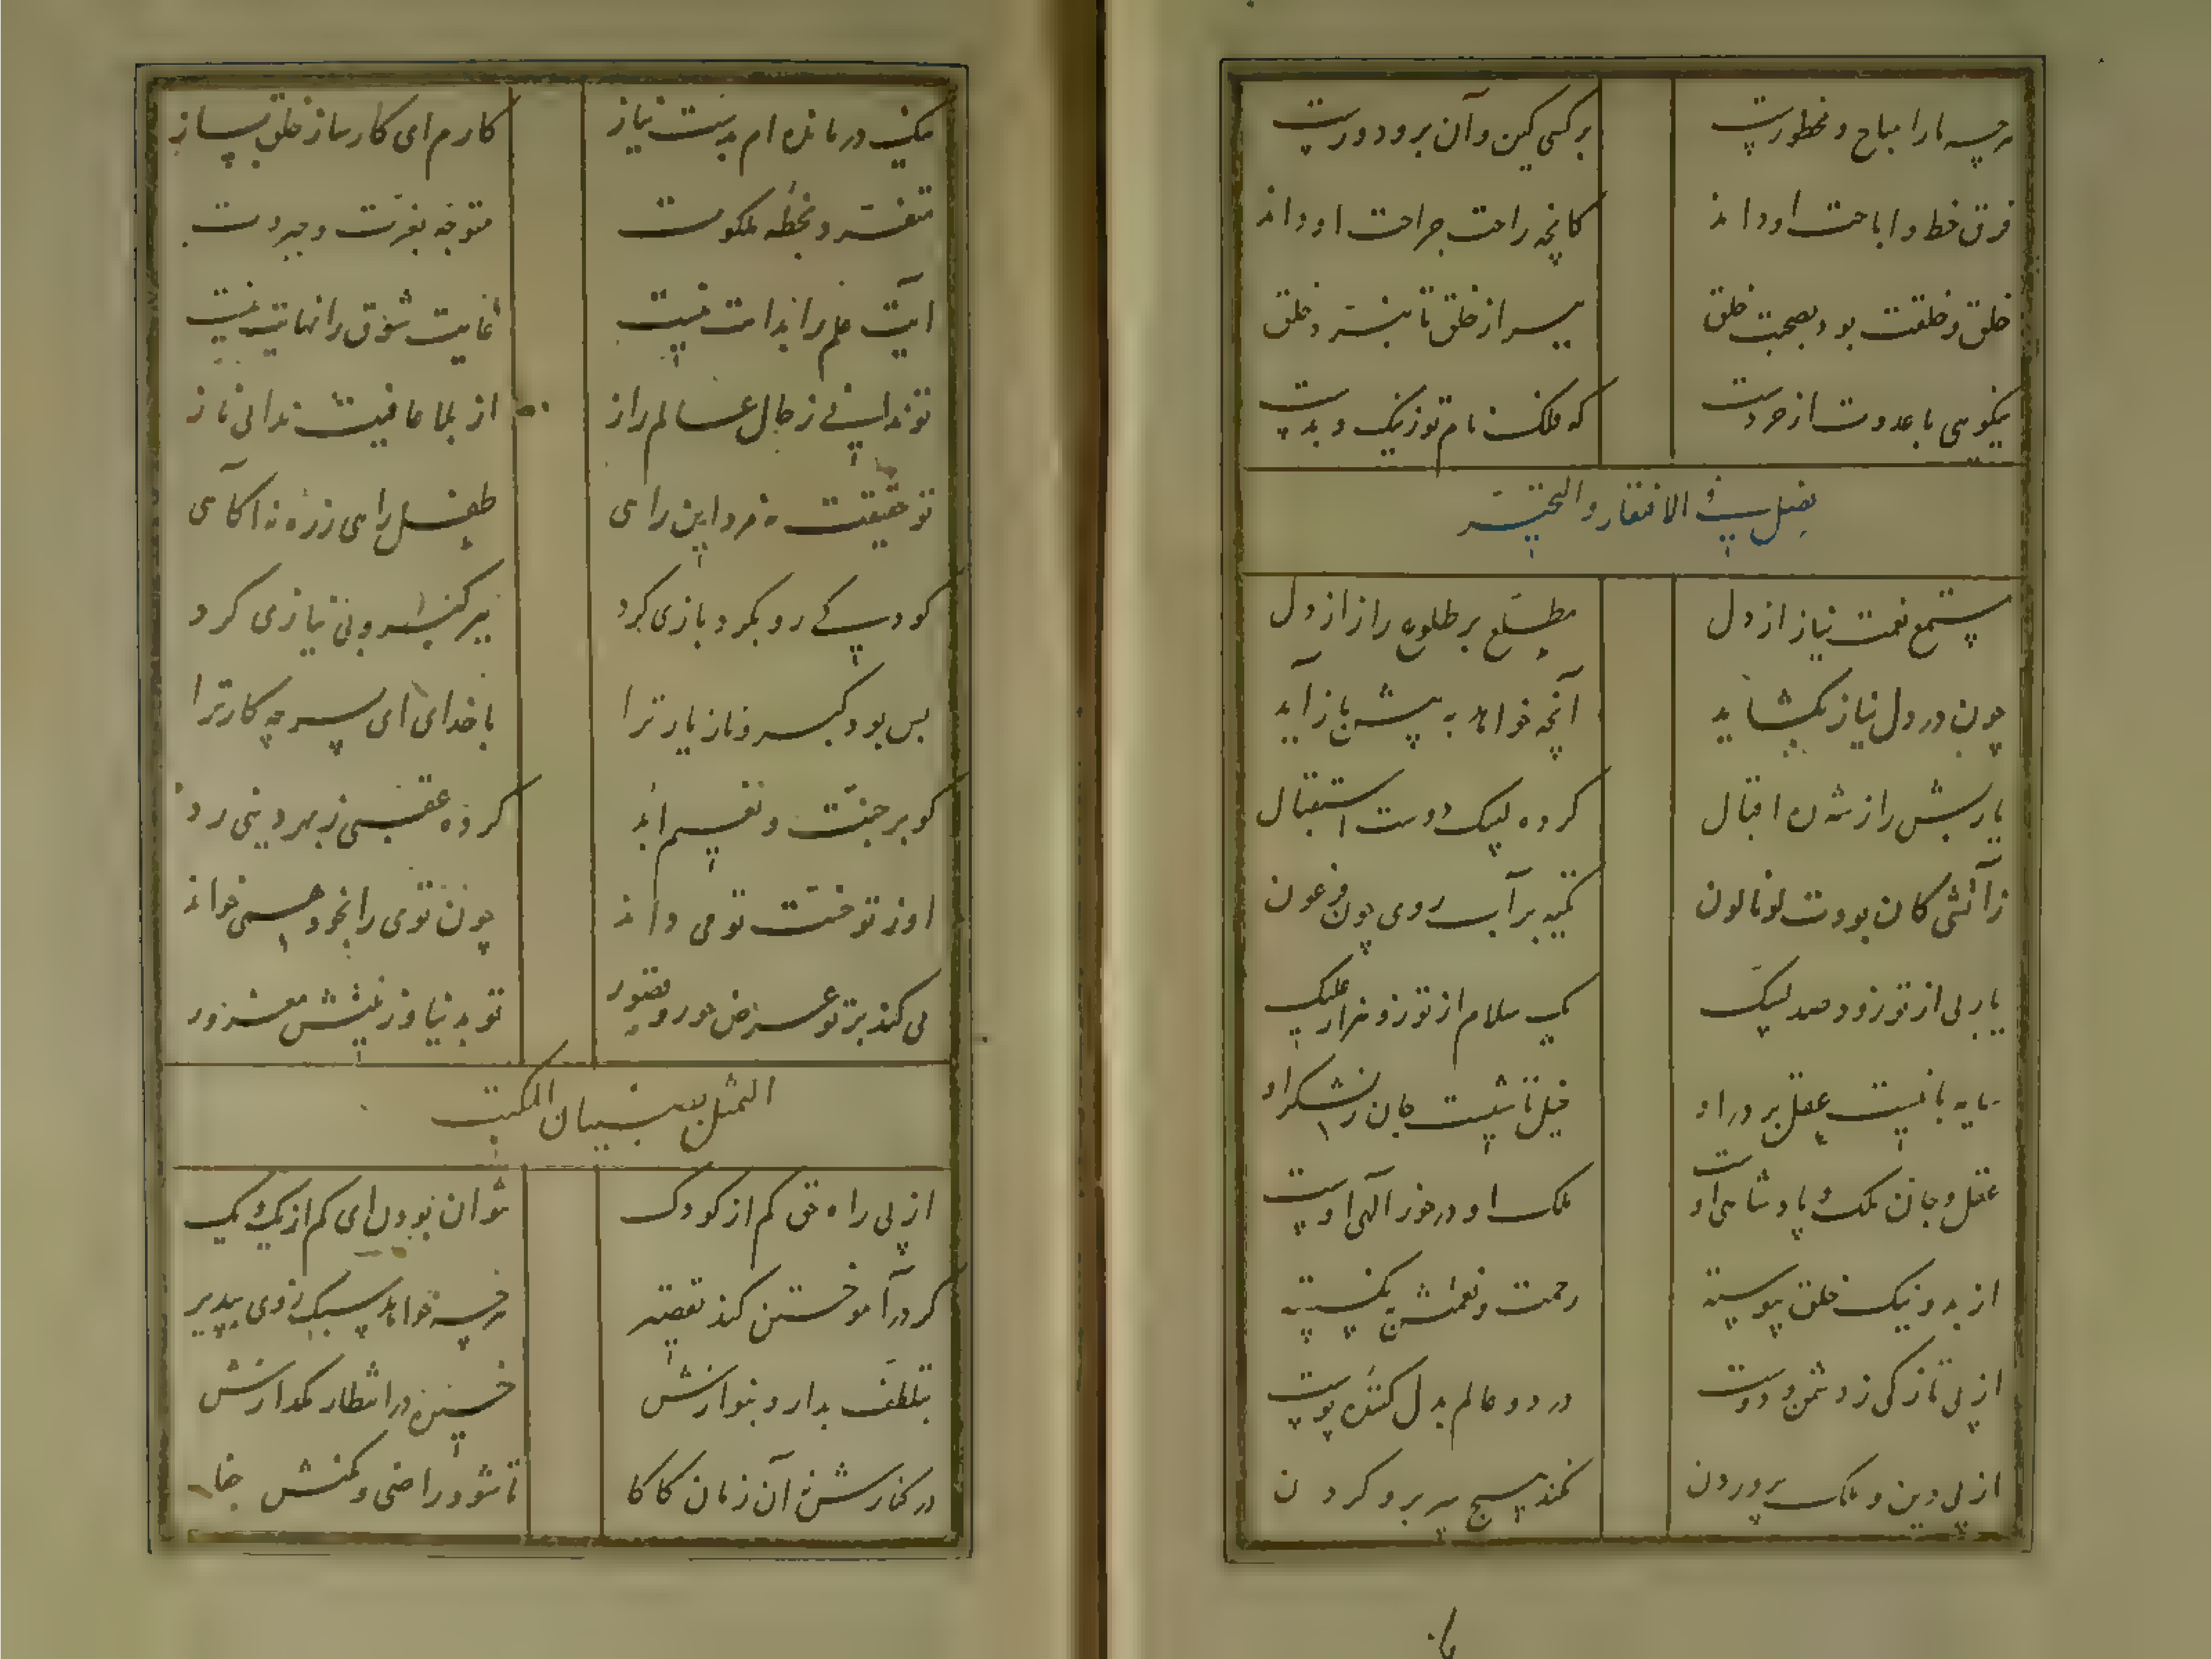 هرچه مارا مباح و محظورست برکسی کین و آن برو دورست
فرق خطر و اباحت او داند کانچه راحت جراحت او داند
خلق و خلقت بود بصحبت خلق ببر از خلق تا نبرد خلق
نیکویی با عدوت از خردست که فلک نام تو ز نیک و بدست
فصل فی الافتقار والتحیر
مستمع نغمت نیاز از دل مطلع بر طلوع راز از دل
چون در دل نیاز بگشاید آنچه خواهد به پیش باز آید
یاربش را ز شه ره اقبال کرده لبیک دوست استقبال
زآتشی کان بودت لونالون تکیه بر آب روی چون فرعون
یاربی از تو زو دو صد لبیک یک سلام از تو زو هزار علیک
سایه بانیست عقل بر در او خیل تاشیست جان ز لشکر او
عقل و جان ملک پادشاهی اوست ملک او در خور الهی اوست
از بد و نیک خلق پیوسته رحمت و نعمتش بنگسسته
از پی تازگی ز دشمن و دوست در دو عالم بدل کننده پوست
از پی دین و ملک پروردن نکند هیچ سر برو گردن
مسکین درمانده ام بدست نیاز کارم ای کارساز خلق بساز
متفرد بخطه ملکوت متوحد بعزت و جبروت
آیت علم را بدایت نیست غایت شوق را نهایت نیست
تو ندانسته ز حال عالم راز از بلا عافیت ندانی باز
تو حقیقت نه مرد این راهی طفل راهی ز ره نه آگاهی
کودکی رو بگرد بازی گرد بر کبر و بی نیازی گرد
بس بود کبر و ناز یار ترا با خدای ای پسر چه کار ترا
کو بر جنت و نعیم اند کرده عقبی ز بهر دینی رد
او ز تو حسرت تو می داند چون توی را بخود همی خواند
می کند بر تو عرض حور و قصور تو بدنیا و زینتش مغرور
التمثل بصبیان المکتب
از پی راه حق کم از کودک نتوان بودن ای کم از یک یک
گر در آموختن کند تقصیر هرچه خواهد سبک ز وی بپذیر
بتلطف بدار و بنوازش خیره در انتظار مگدازش
در کنارش نه آن زمان کاکا تا شود راضی و مکنش جفا